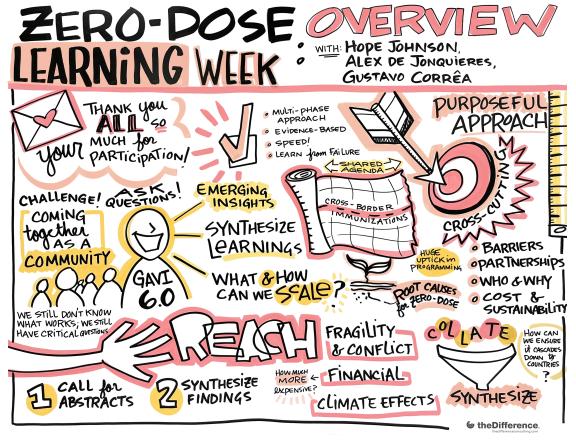 ZERO-DOSE OVERVIEW
LEARNING WEEK
WITH: HOPE JOHNSON,
ALEX DE JONQUIERES,
GUSTAVO CORRÊA
THANK you
ALL so
much for
your PARTICIPATION!
MULTI-PHASE
APPROACH
EVIDENCE-BASED
SPEED!
LEARN from FAILURE
PURPOSEFUL
APPROACH
CROSS-CUTTING
SHARED
AGENDA
CROSS-BORDER
IMMUNIZATIONS
CHALLENGE! ASK QUESTIONS!
COMING
together
AS A
COMMUNITY
GAVI
6.0
EMERGING
INSIGHTS
SYNTHESIZE
LEARNINGS
WHAT & HOW
CAN WE SCALE?
HUGE
UPTICK in
PROGRAMMING
ROOT CAUSES
for ZERO-DOSE
BARRIERS
PARTNERSHIPS
WHO & WHY
COST &
SUSTAINABILITY
WE STILL DON'T KNOW
WHAT WORKS; WE STILL
HAVE CRITICAL QUESTIONS
REACH
FRAGILITY
& CONFLICT
HOW MUCH
MORE
EXPENSIVE?
FINANCIAL
CLIMATE EFFECTS
1 CALL for
ABSTRACTS
2 SYNTHESIZE
FINDINGS
COLLATE
SYNTHESIZE
HOW CAN
WE ENSURE
it CASCADES
DOWN to
COUNTRIES
?
theDifference.